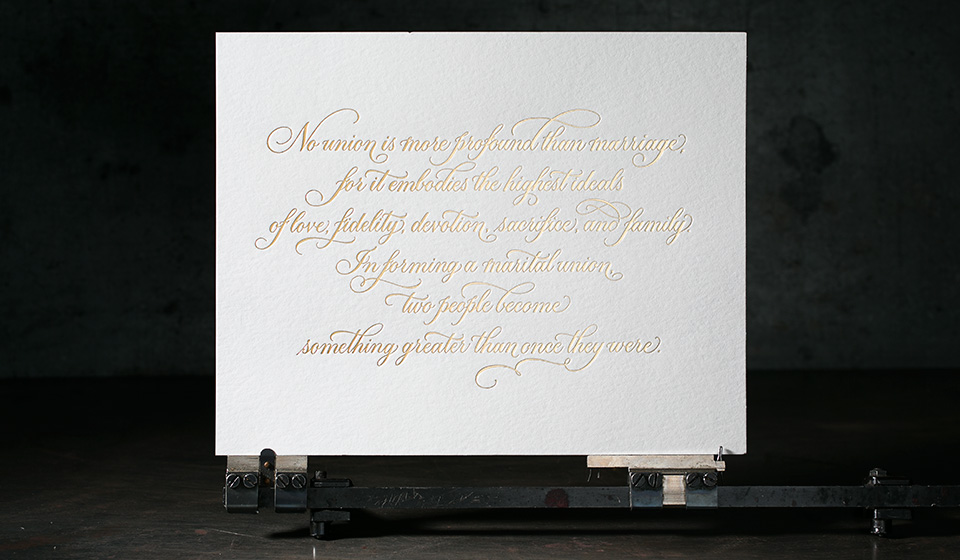 No union is more profound than marriage,
for it embodies the highest ideals
of love, fidelity, devotion, sacrifice, and family.
In forming a marital union,
two people become
something greater than once they were.